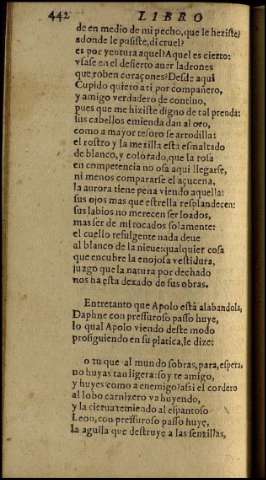 442 LIBRO
de en medio de mi pecho, que le heziste?
adonde le pusiste, di cruel?
es por ventura aquel? Aquel es cierto:
vsase en el desierto auer ladrones
que roben coraçones? Desde aqui
Cupido quiero a ti por compañero,
y amigo verdadero de contino,
pues que me hiziste digno de tal prenda:
sus cabellos emienda dan al oro,
como a mayor tesoro se arrodilla:
el rostro y la mexilla està esmaltado
de blanco, y colorado, que la rosa
en competencia no osa aqui llegarse,
ni menos compararse el açucena,
la aurora tiene pena viendo aquella:
sus ojos mas que estrella resplandecen:
sus labios no merecen ser loados,
mas ser de mi tocados solamente:
el cuello refulgente nada deue
al blanco de la nieue: qualquier cosa
que encubre la enojosa vestidura,
juzgo que la natura por dechado
nos ha esta dexado de sus obras.
Entretanto que Apolo està alabandola,
Daphne con pressuroso passo huye,
lo qual Apolo viendo deste modo
prosiguiendo en su platica, le dize:
o tu que al mundo sobras, para, espera,
no huyas tan ligera: so y te amigo,
y huyes como a enemigo? assi el cordero
al lobo carnizero va huyendo,
y la cierua temiendo al espantoso
Leon, con pressuroso passo huye,
la aguila que destruye a las senzillas,